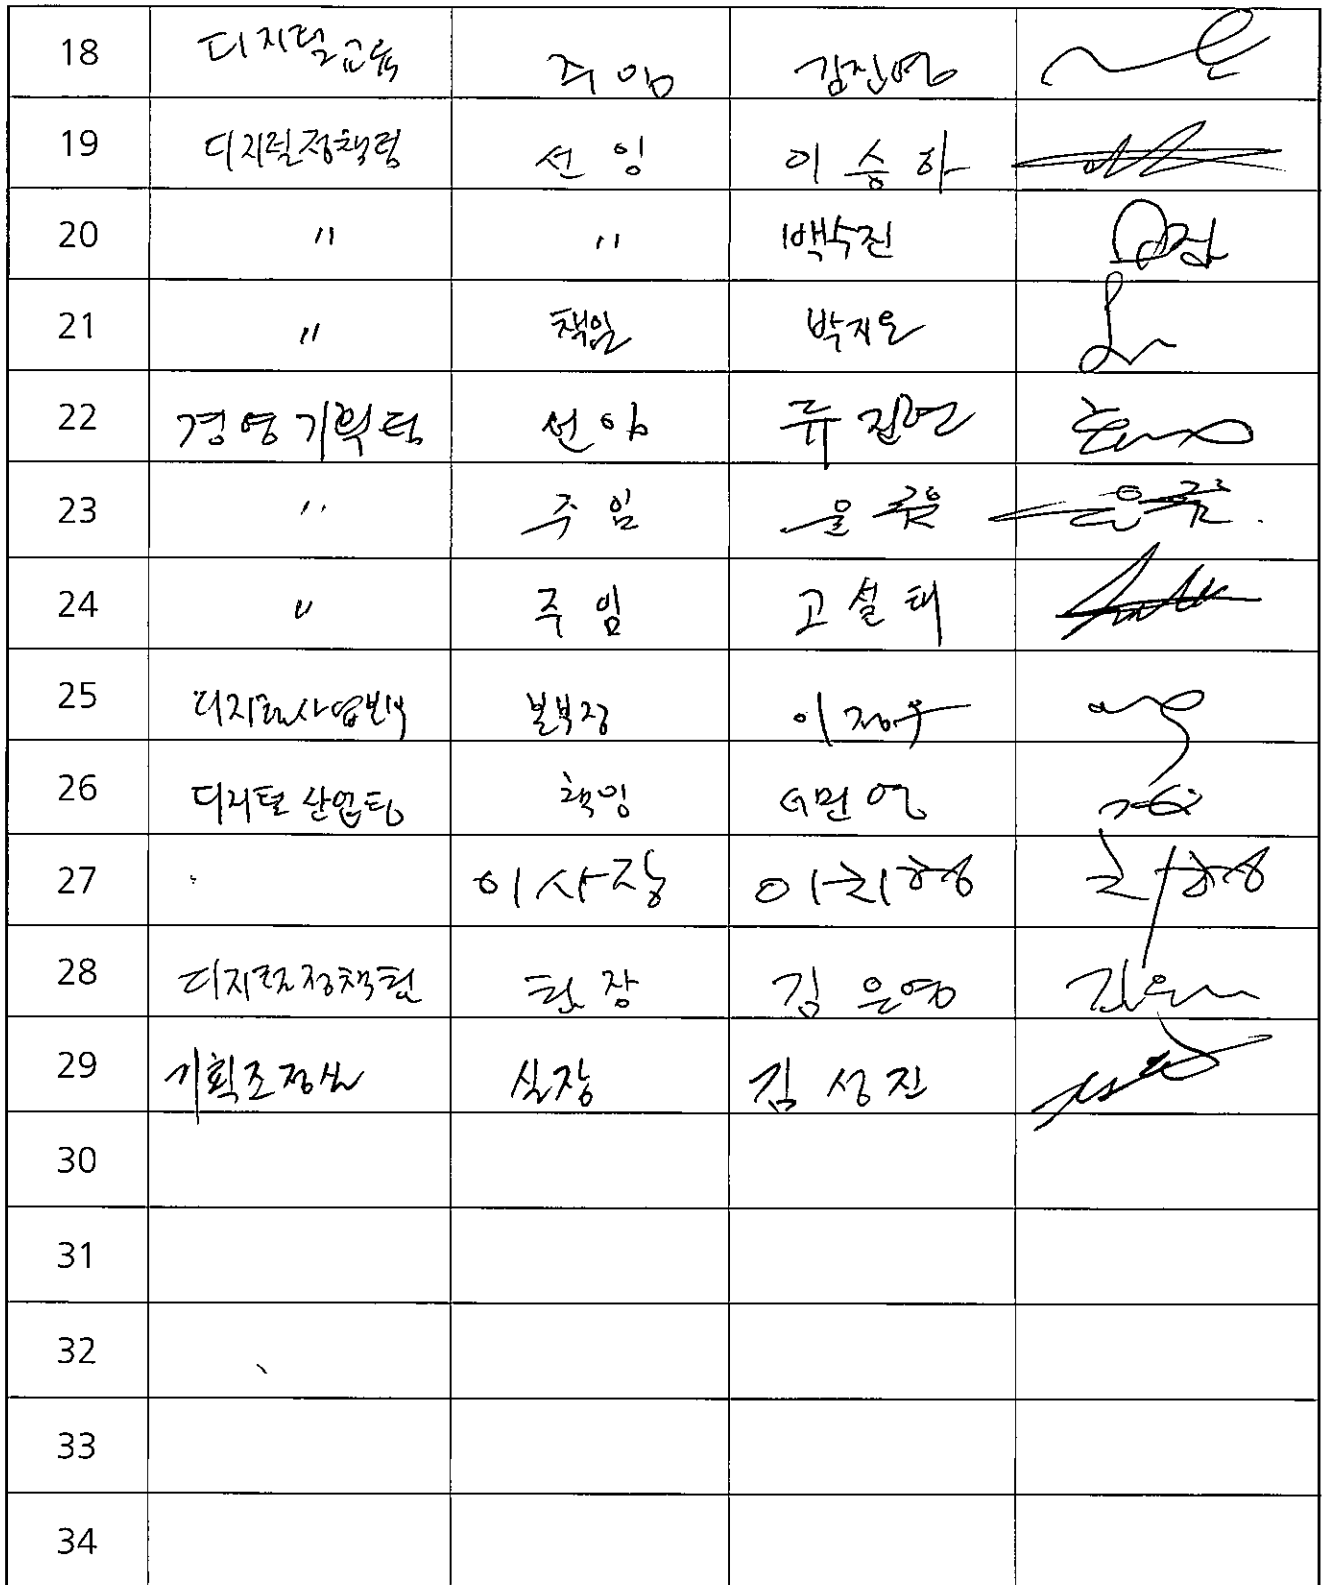 18 디지털교육 주임 김진영
19 디지털정책팀 선임 이승하
20 〃 〃 백수진
21 〃 책임 박지은
22 경영기획팀 선임 류진연
23 〃 주임 윤
24 〃 주임 고설태
25 디지털사업본부 본부장 이정우
26 디지털산업팀 책임
27 이사장 이희형
28 디지털정책팀 팀장 김은영
29 기획조정실 실장 김성진
30
31
32
33
34